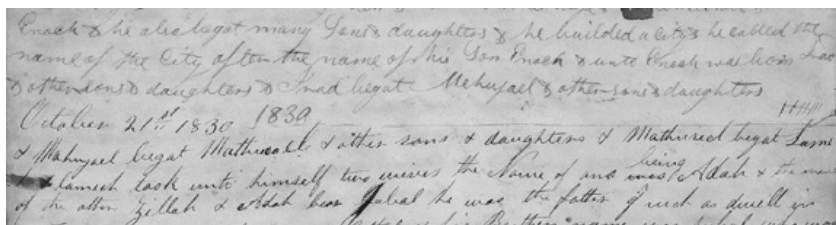 Enoch & he also begat many Sons & daughters & he builded a city & he called the
name of the City after the name of his Son Enoch & unto Enoch was born Irad
& other sons & daughters & Irad begat Mehujael & other sons & daughters
October 21st 1830 1830
& Mahujael begat Mathusael & other sons & daughters & Mathusael begat Lame
& lamech took unto himself two wives the Name of one being was Adah & the name
of the other Zillah & Adah bear Jabal he was the father of such as dwell in
name was Jubal who was